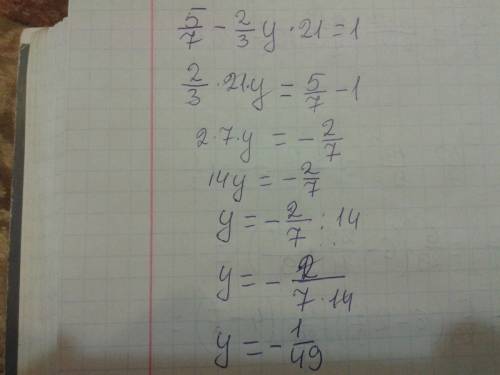 5/7 - 2/3 y · 21 = 1
2/3 · 21 · y = 5/7 - 1
2 · 7 · y = - 2/7
14y = - 2/7
y = - 2/7 : 14
y = - 2/(7 · 14)
y = - 1/49